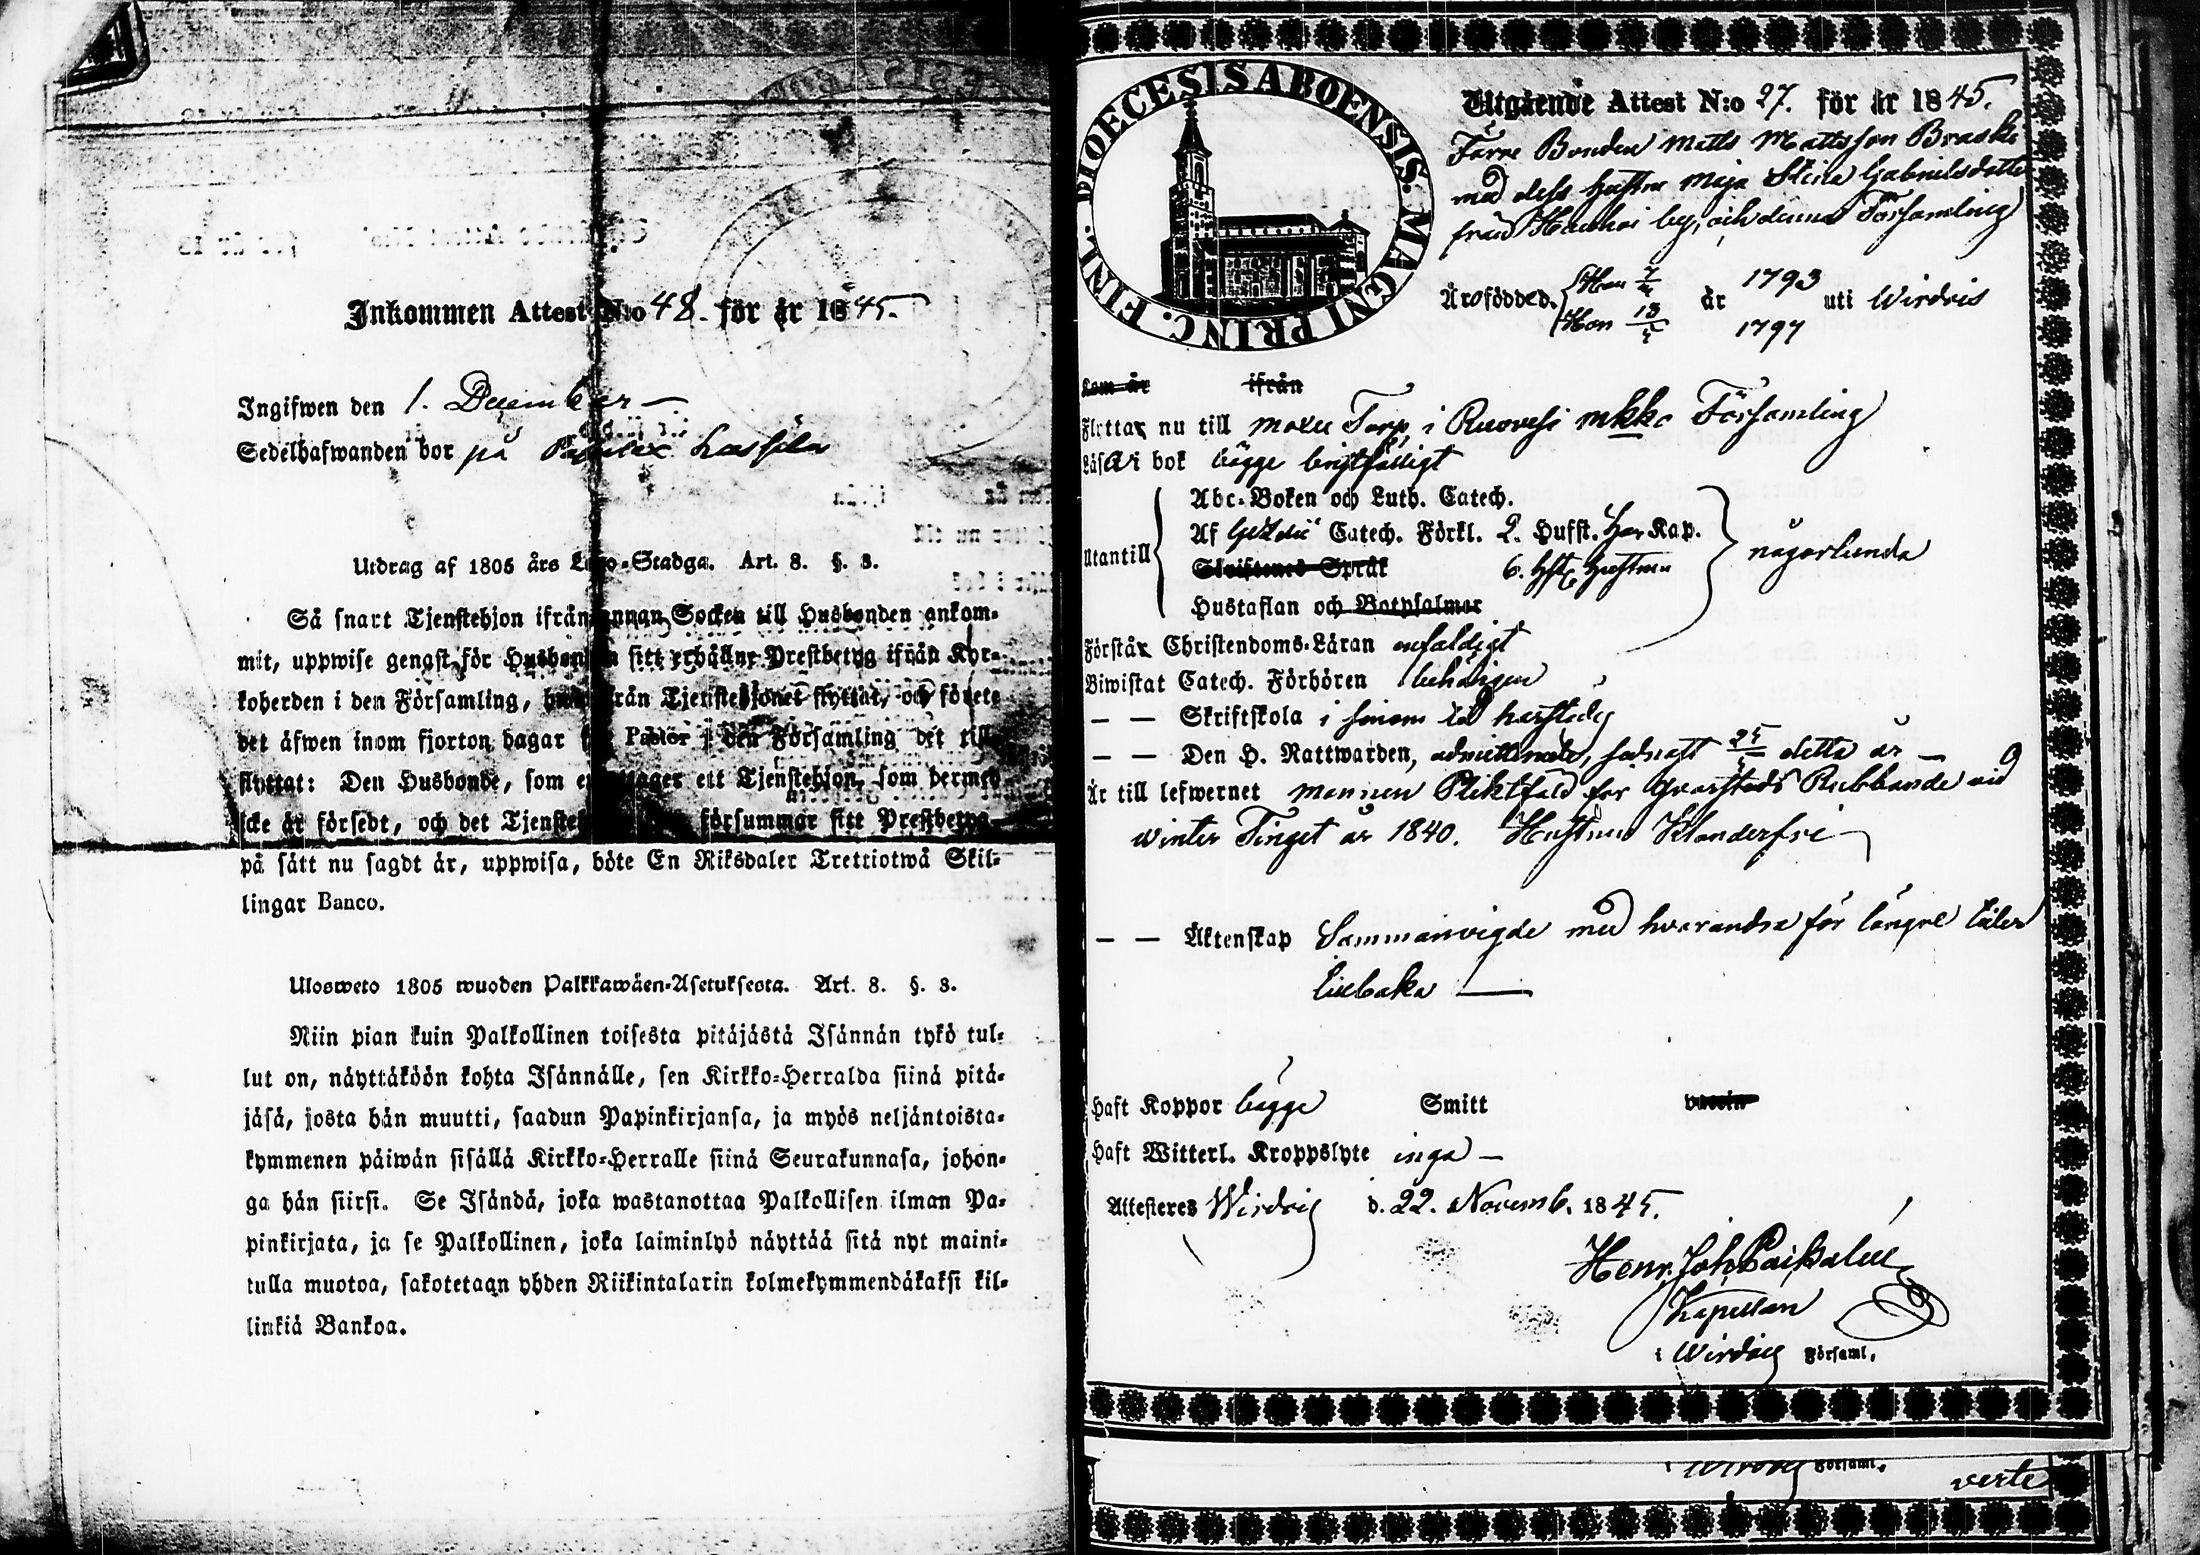 Inkommen Attest N:o 48. för år 1845.
Ingifwen den 1. December
Sedelhafwanden bor på Lassila
Utdrag af 1805 års Lego-Stadga. Art. 8. §. 3.
Så snart Tjenstehjon ifrån annan Socken till Husbonden ankom-
mit, uppwise genast för Husbonden sitt erhållne Prestbetyg ifrån Kyr-
koherden i den Församling, hwarifrån Tjenstehjonet flyttat, och förete
det äfwen inom fjorton dagar för Pastor i den Församling det till-
flyttat: Den Husbonde, som emottager ett Tjenstehjon, som dermed
icke är försedt, och det Tjenstehjon försummar sitt Prestbetyg
på sätt nu sagdt är, uppwisa, böte En Riksdaler Trettiotwå Skil-
lingar Banco.
Ulosweto 1805 wuoden Palkkawäen-Asetuksesta. Art. 8. §. 3.
Niin pian kuin Palkollinen toisesta pitäjästä Isännän tykö tul-
lut on, näyttäköön kohta Isännälle, sen Kirkko-Herralda siinä pitä-
jäsä, josta hän muutti, saadun Papinkirjansa, ja myös neljäntoista-
kymmenen päiwän sisällä Kirkko-Herralle siinä Seurakunnasa, johon-
ga hän siirsi. Se Isändä, joka wastanottaa Palkollisen ilman Pa-
pinkirjata, ja se Palkollinen, joka laiminlyö näyttää sitä nyt maini-
tulla muotoa, sakotetaan yhden Riikintalarin kolmekymmendäkaksi kil-
linkiä Bankoa.
DIOECESIS ABOENSIS. MAGNI PRINC. FINL.
Utgående Attest N:o 27. för år 1845.
Förre Bonden Matts Mattsson Braske
med dess hustru Maja Stina Gabrielsdotter
från by, och denna Församling
Äro födde d. Han 7 år 1793 uti Wirdois
Hon 13 1797
Kom år ifrån
Flyttar nu till Torp i Ruovesi mkko Församling
Läsa i bok bägge bristfälligt
Abc-Boken och Luth. Catech.
Utantill Af Catech. Förkl. 2. Hufst. Kap. någorlunda
Skriftenes Språk 6. Hfst. Hustrun
Hustaflan och Botpsalmer
Förstår Christendoms-Läran enfaldigt
Biwistat Catech. Förhören behörigen
— — Skriftskola i sinom tid
— — Den H. Nattwarden, admitterade, sednast 25 detta år —
Är till lefwernet mannen Pliktfäld för Qvarstads Rubbande vid
Winter Tinget år 1840. Hustrun Klanderfri
— — Äktenskap Sammanvigde med hvarandra för längre tider
tillbaka —
Haft Koppor bägge Smitt vaccin
Haft Witterl. Kroppslyte inga —
Attesteres Wirdois d. 22. Novemb. 1845.
Henr. Joh.
Kapellan
i Wirdois Församl.
Församl.
verte